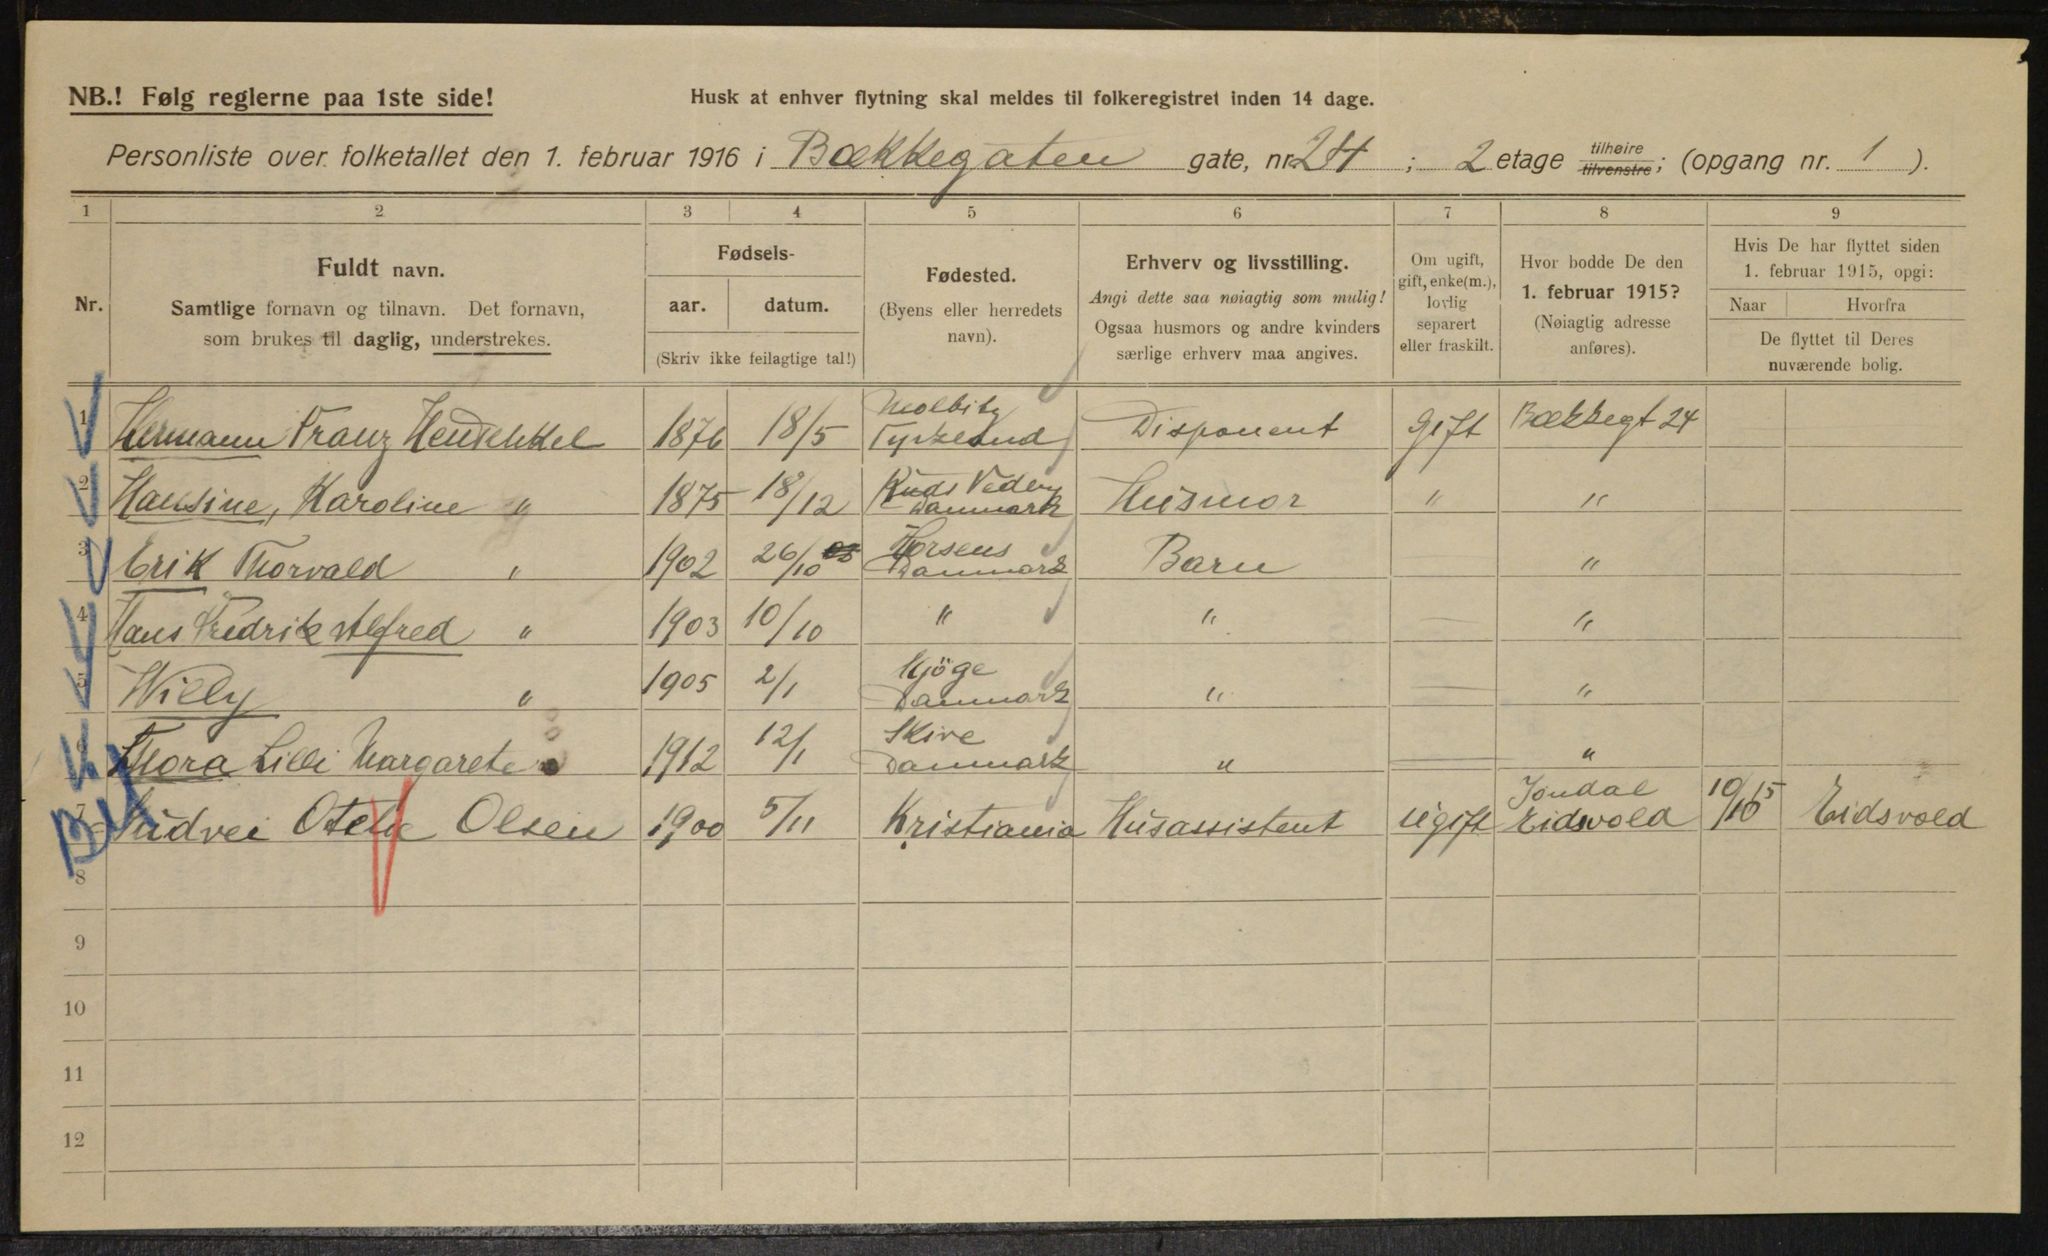 NB.! Følg reglerne paa 1ste side!
Husk at enhver flytning skal meldes til folkeregistret inden 14 dage.
Personliste over folketallet den 1. februar 1916 i Bækkegaten gate, nr. 24; 2 etage tilhøire tilvenstre; (opgang nr. 1).
1 2 3 4 5 6 7 8 9
Nr.
Fuldt navn.
Samtlige fornavn og tilnavn. Det fornavn,
som brukes til daglig, understrekes.
Fødsels-
aar. datum.
(Skriv ikke feilagtige tal!)
Fødested.
(Byens eller herredets
navn).
Erhverv og livsstilling.
Angi dette saa nøiagtig som mulig!
Ogsaa husmors og andre kvinders
særlige erhverv maa angives.
Om ugift,
gift, enke(m.),
lovlig
separert
eller fraskilt.
Hvor bodde De den
1. februar 1915?
(Nøiagtig adresse
anføres).
Hvis De har flyttet siden
1. februar 1915, opgi:
Naar Hvorfra
De flyttet til Deres
nuværende bolig.
1 Hermann Franz 1876 18/5 Disponent gift Bækkegt 24
2 Hansine, Karoline " 1875 18/12 Danmark Husmor " "
3 Erik Thorvald " 1902 26/10 Horsens Danmark Barn "
4 Hans Fredrik Alfred " 1903 10/10 " " — "
5 Willy " 1905 2/1 Kjöge Danmark " — "
6 Thora Lilli Margarete " 1912 12/1 Skive Danmark " — "
7 Olsen 1900 5/11 Kristiania Husassistent ugift Jondal Eidsvold 10/10 15 Eidsvold
8
9
10
11
12